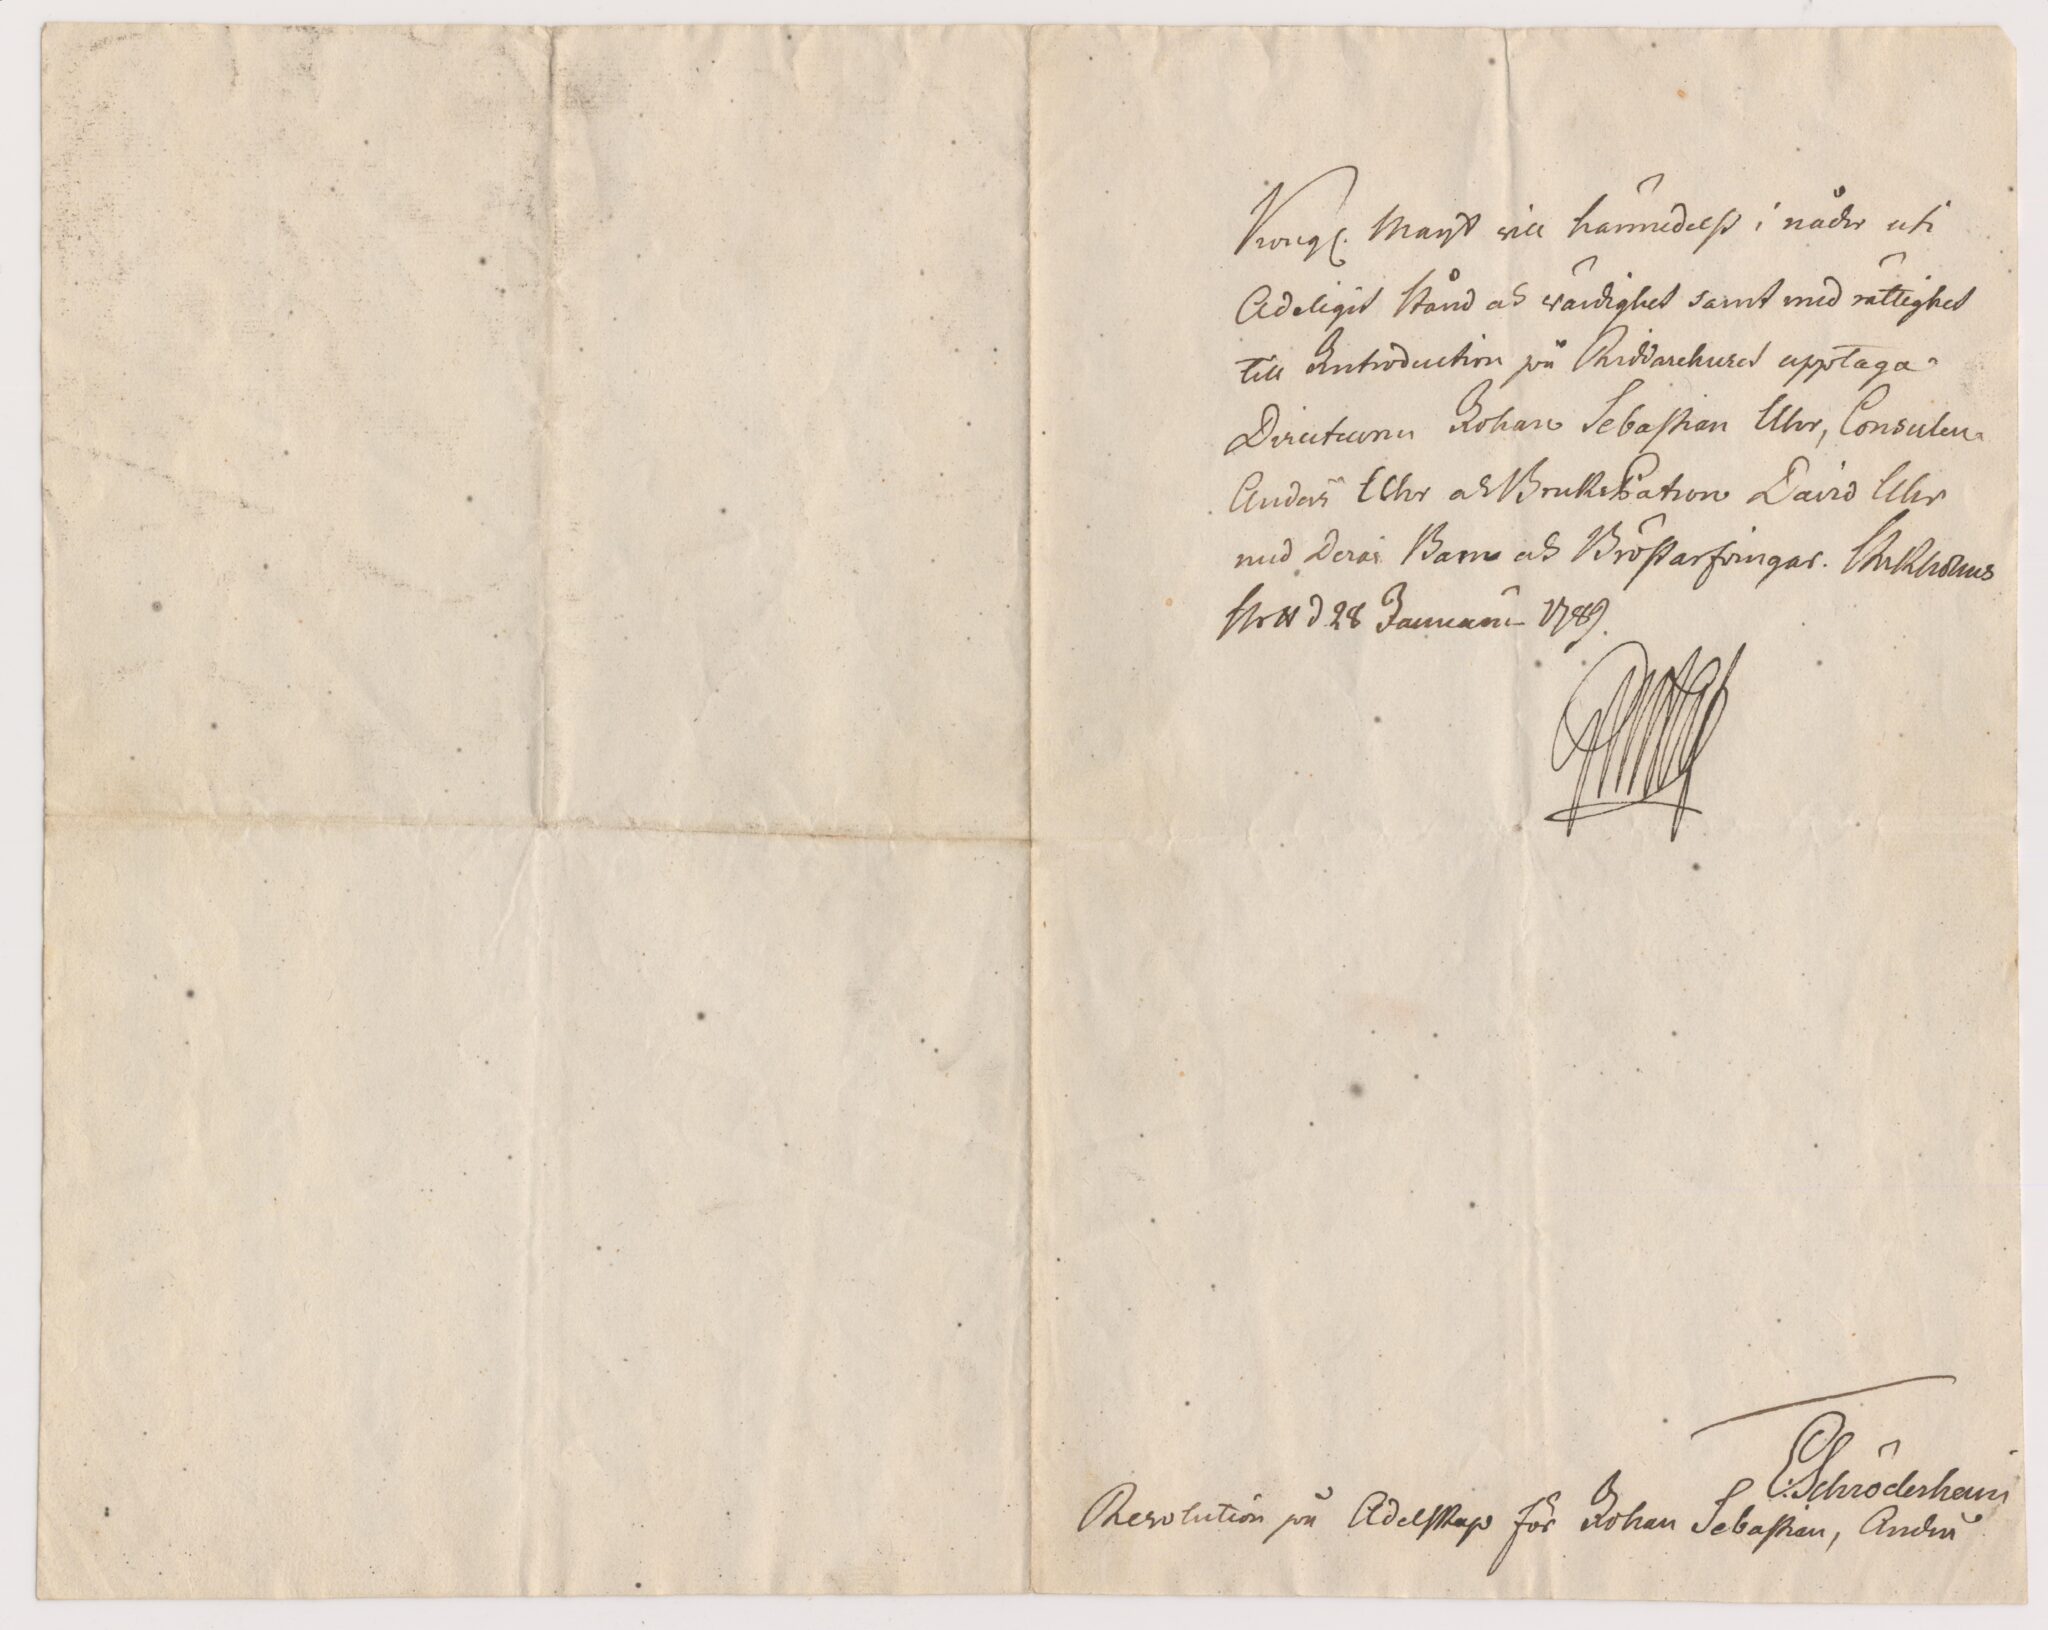 Kongl. Maijt will härmedelst i nåder uti
Adeligit Stånd och värdighet samt med rättighet
till Introduction på Riddarehuset upptaga
Directeuren Johan Sebastian Uhr, Consulen
Anders Uhr och BruksPatron David Uhr
med Deras Barn och Bröstarfvingar. Stockholms
Slott d 28 Januarii 1789.
E. Schröderheim
Resolution på Adelskap för Johan Sebastian, Anders